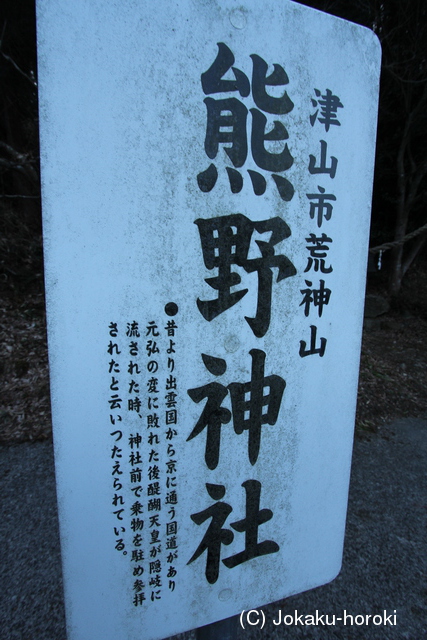 津山市荒神山
熊野神社
●昔より出雲国から京に通う国道があり
元弘の変に敗れた後醍醐天皇が隠岐に
流された時、神社前で乗物を駐め参拝
されたと云いつたえられている。
(C) Jokaku-horoki